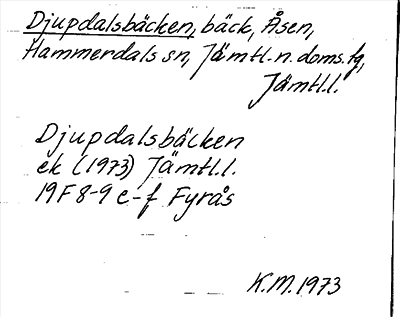 Djupdalsbäcken, bäck, Åsen,
Hammerdals sn, Jämtl. n. doms. fg,
Jämtl.l.
Djupdalsbäcken
ek (1973) Jämtl.l.
19F 8-9 e-f Fyrås
K.M. 1973